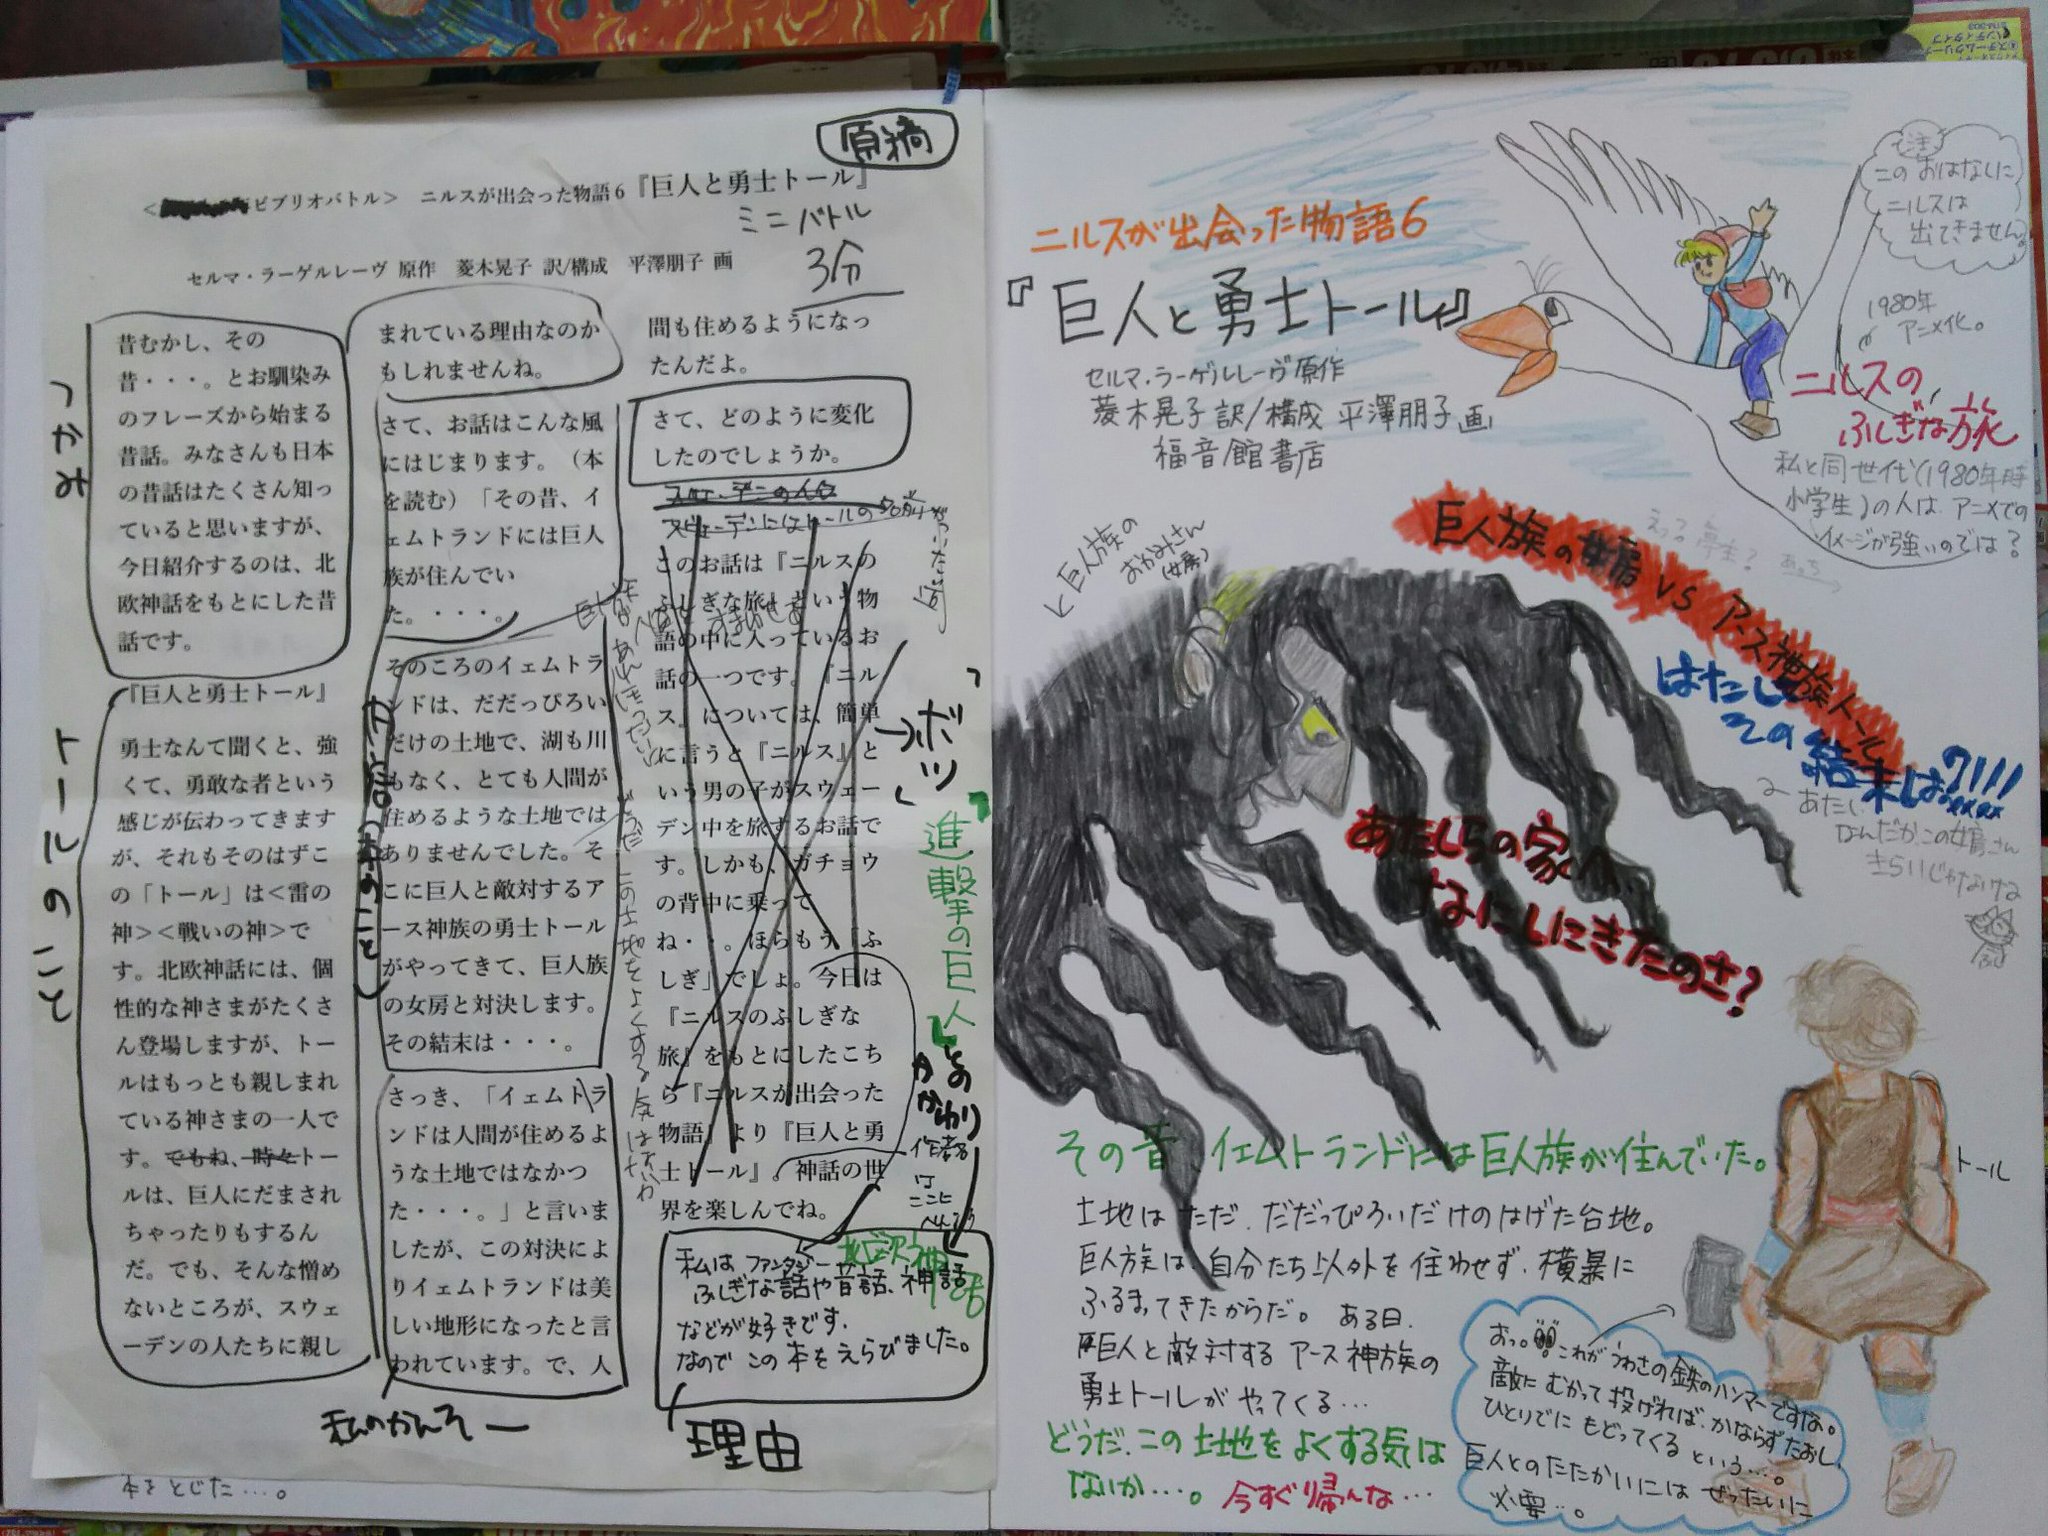 原稿
ビブリオバトル＞ ニルスが出会った物語6『巨人と勇士トール』
ミニバトル
3分
セルマ・ラーゲルレーヴ 原作 菱木晃子 訳/構成 平澤朋子 画
つかみ
昔むかし、その
昔・・・。とお馴染み
のフレーズから始まる
昔話。みなさんも日本
の昔話はたくさん知っ
ていると思いますが、
今日紹介するのは、北
欧神話をもとにした昔
話です。
トールのこと
『巨人と勇士トール』
勇士なんて聞くと、強
くて、勇敢な者という
感じが伝わってきます
が、それもそのはずこ
の「トール」は＜雷の
神＞＜戦いの神＞で
す。北欧神話には、個
性的な神さまがたくさ
ん登場しますが、トー
ルはもっとも親しまれ
ている神さまの一人で
す。でもね、時々トー
ルは、巨人にだまされ
ちゃったりもするん
だ。でも、そんな憎め
ないところが、スウェ
ーデンの人たちに親し
まれている理由なのか
もしれませんね。
さて、お話はこんな風
にはじまります。（本
を読む）「その昔、イ
ェムトランドには巨人
族が住んでい
た。・・・。
そのころのイェムトラ
ンドは、だだっぴろい
だけの土地で、湖も川
もなく、とても人間が
住めるような土地では
ありませんでした。そ
こに巨人と敵対するア
ース神族の勇士トール
がやってきて、巨人族
の女房と対決します。
その結末は・・・。
さっき、「イェムトラ
ンドは人間が住めるよ
うな土地ではなかっ
た・・・。」と言いま
したが、この対決によ
りイェムトランドは美
しい地形になったと言
われています。で、人
私のかんそー
間も住めるようになっ
たんだよ。
さて、どのように変化
したのでしょうか。
このお話は『ニルスの
ふしぎな旅』という物
語の中に入っているお
話の一つです。『ニル
ス』については、簡単
に言うと『ニルス』と
いう男の子がスウェー
デン中を旅するお話で
す。しかも、ガチョウ
の背中に乗って
ね・・。ほらもう「ふ
しぎ」でしょ。今日は
『ニルスのふしぎな
旅』をもとにしたこち
ら『ニルスが出会った
物語』より『巨人と勇
士トール』。神話の世
界を楽しんでね。
どうだ この土地をよくする気はないか
→ボツ
『進撃の巨人』とのかかわり
私は ファンタジー
ふしぎな話や昔話、神話
などが好きです。
なので この本をえらびました。
理由
本をとじた…。
ニルスが出会った物語6
『巨人と勇士トール』
セルマ・ラーゲルレーヴ原作
菱木晃子 訳/構成 平澤朋子 画
福音館書店
注
このおはなしに
ニルスは
出てきません。
1980年
アニメ化。
ニルスの
ふしぎな旅
私と同世代(1980年時
小学生)の人は、アニメでの
イメージが強いのでは？
巨人族の
おかみさん
(女房)
巨人族の女房 VS アース神族トール
はたして
その結末は?!!!
あたしらの家へ
なにしにきたのさ？
あたし、
なんだかこの女房さん
きらいじゃないな
その昔 イェムトランドには巨人族が住んでいた。
土地はただ、だだっぴろいだけのはげた台地。
巨人族は、自分たち以外を住わせず、横暴に
ふるまってきたからだ。ある日、
巨人と敵対するアース神族の
勇士トールがやってくる…
どうだ、この土地をよくする気は
ないか…。今すぐ帰んな…
トール
おっ。これがうわさの鉄のハンマーですな。
敵にむかって投げれば、かならずたおし、
ひとりでにもどってくるという…。
巨人とのたたかいにはぜったいに
必要…。